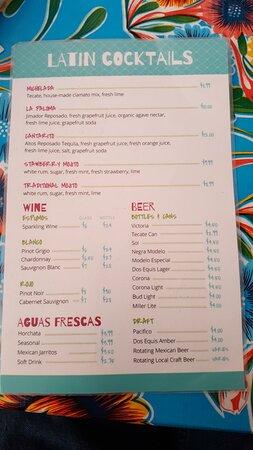 LATIN COCKTAILS
MICHELADA
Tecate, house-made clamato mix, fresh lime
LA PALOMA
Jimador Reposado, fresh grapefruit juice, organic agave nectar,
fresh lime juice, grapefruit soda
CANTARITO
Altos Reposado Tequila, fresh grapefruit juice, fresh orange juice,
fresh lime juice, salt, grapefruit soda
STAWBERRY MOJITO
white rum, sugar, fresh mint, fresh strawberry, lime
TRADITIONAL MOJITO
white rum, sugar, fresh mint, fresh lime
WINE
ESPUMOS GLASS BOTTLE
Sparkling Wine
BLANCO
Pinot Grigio
Chardonnay
Sauvignon Blanc
ROJO
Pinot Noir
Cabernet Sauvignon
AGUAS FRESCAS
Horchata $3.99
Seasonal $3.99
Mexican Jarritos $3.50
Soft Drink
BEER
BOTTLES & CANS
Victoria $4.50
Tecate Can
Sol $4.50
Negra Modelo $4.50
Modelo Especial $4.50
Dos Equis Lager $4.50
Corona $4.50
Corona Light $4.50
Bud Light $4.00
Miller Lite $4.00
DRAFT
Pacifico $5.00
Dos Equis Amber $5.00
Rotating Mexican Beer VARIES
Rotating Local Craft Beer VARIES